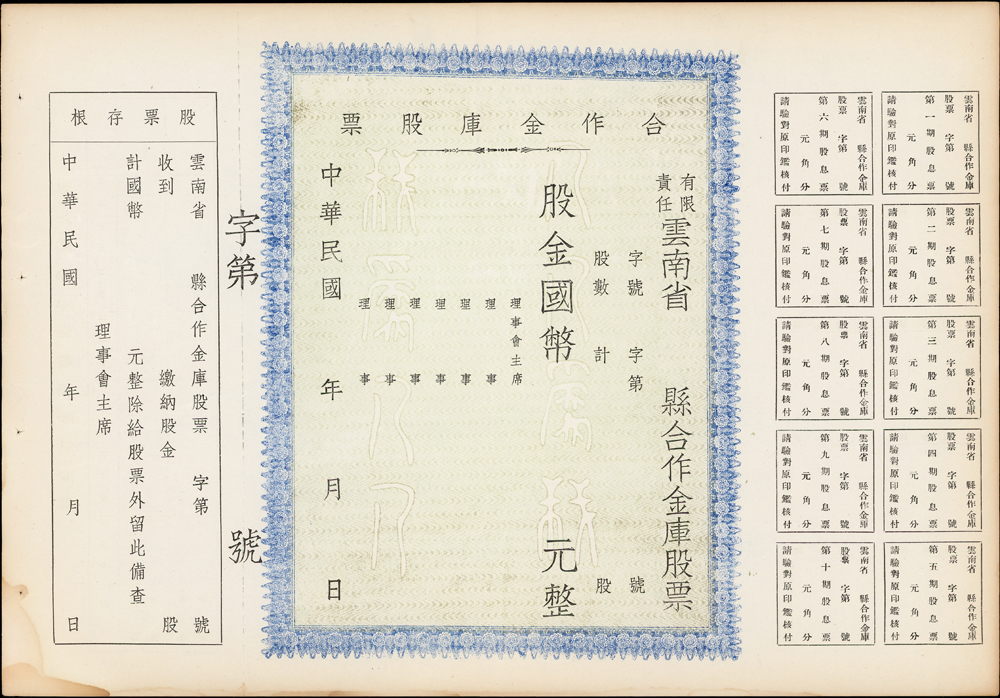 雲南省 縣合作金庫
股票 字第 號
第一期股息票
元 角 分
請驗對原印鑑核付
雲南省 縣合作金庫
股票 字第 號
第六期股息票
元 角 分
請驗對原印鑑核付
雲南省 縣合作金庫
股票 字第 號
第二期股息票
元 角 分
請驗對原印鑑核付
雲南省 縣合作金庫
股票 字第 號
第七期股息票
元 角 分
請驗對原印鑑核付
雲南省 縣合作金庫
股票 字第 號
第三期股息票
元 角 分
請驗對原印鑑核付
雲南省 縣合作金庫
股票 字第 號
第八期股息票
元 角 分
請驗對原印鑑核付
雲南省 縣合作金庫
股票 字第 號
第四期股息票
元 角 分
請驗對原印鑑核付
雲南省 縣合作金庫
股票 字第 號
第九期股息票
元 角 分
請驗對原印鑑核付
雲南省 縣合作金庫
股票 字第 號
第五期股息票
元 角 分
請驗對原印鑑核付
雲南省 縣合作金庫
股票 字第 號
第十期股息票
元 角 分
請驗對原印鑑核付
合作金庫股票
有限責任雲南省 縣合作金庫股票
字號 字第 號
股數 計 股
股金國幣 元整
理事會主席
理事
理事
理事
理事
理事
理事
中華民國 年 月 日
字第 號
股票存根
雲南省 縣合作金庫股票 字第 號
收到 繳納股金 股
計國幣 元整除給股票外留此備查
理事會主席
中華民國 年 月 日